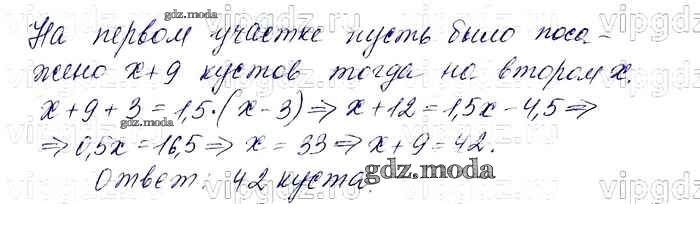 На первом участке пусть было поса-
жено x+9 кустов тогда на втором x.
x+9+3=1,5·(x-3)⇒x+12=1,5x-4,5⇒
⇒0,5x=16,5⇒x=33⇒x+9=42.
Ответ: 42 куста.
gdz.moda
gdz.moda
gdz.moda
gdz.moda